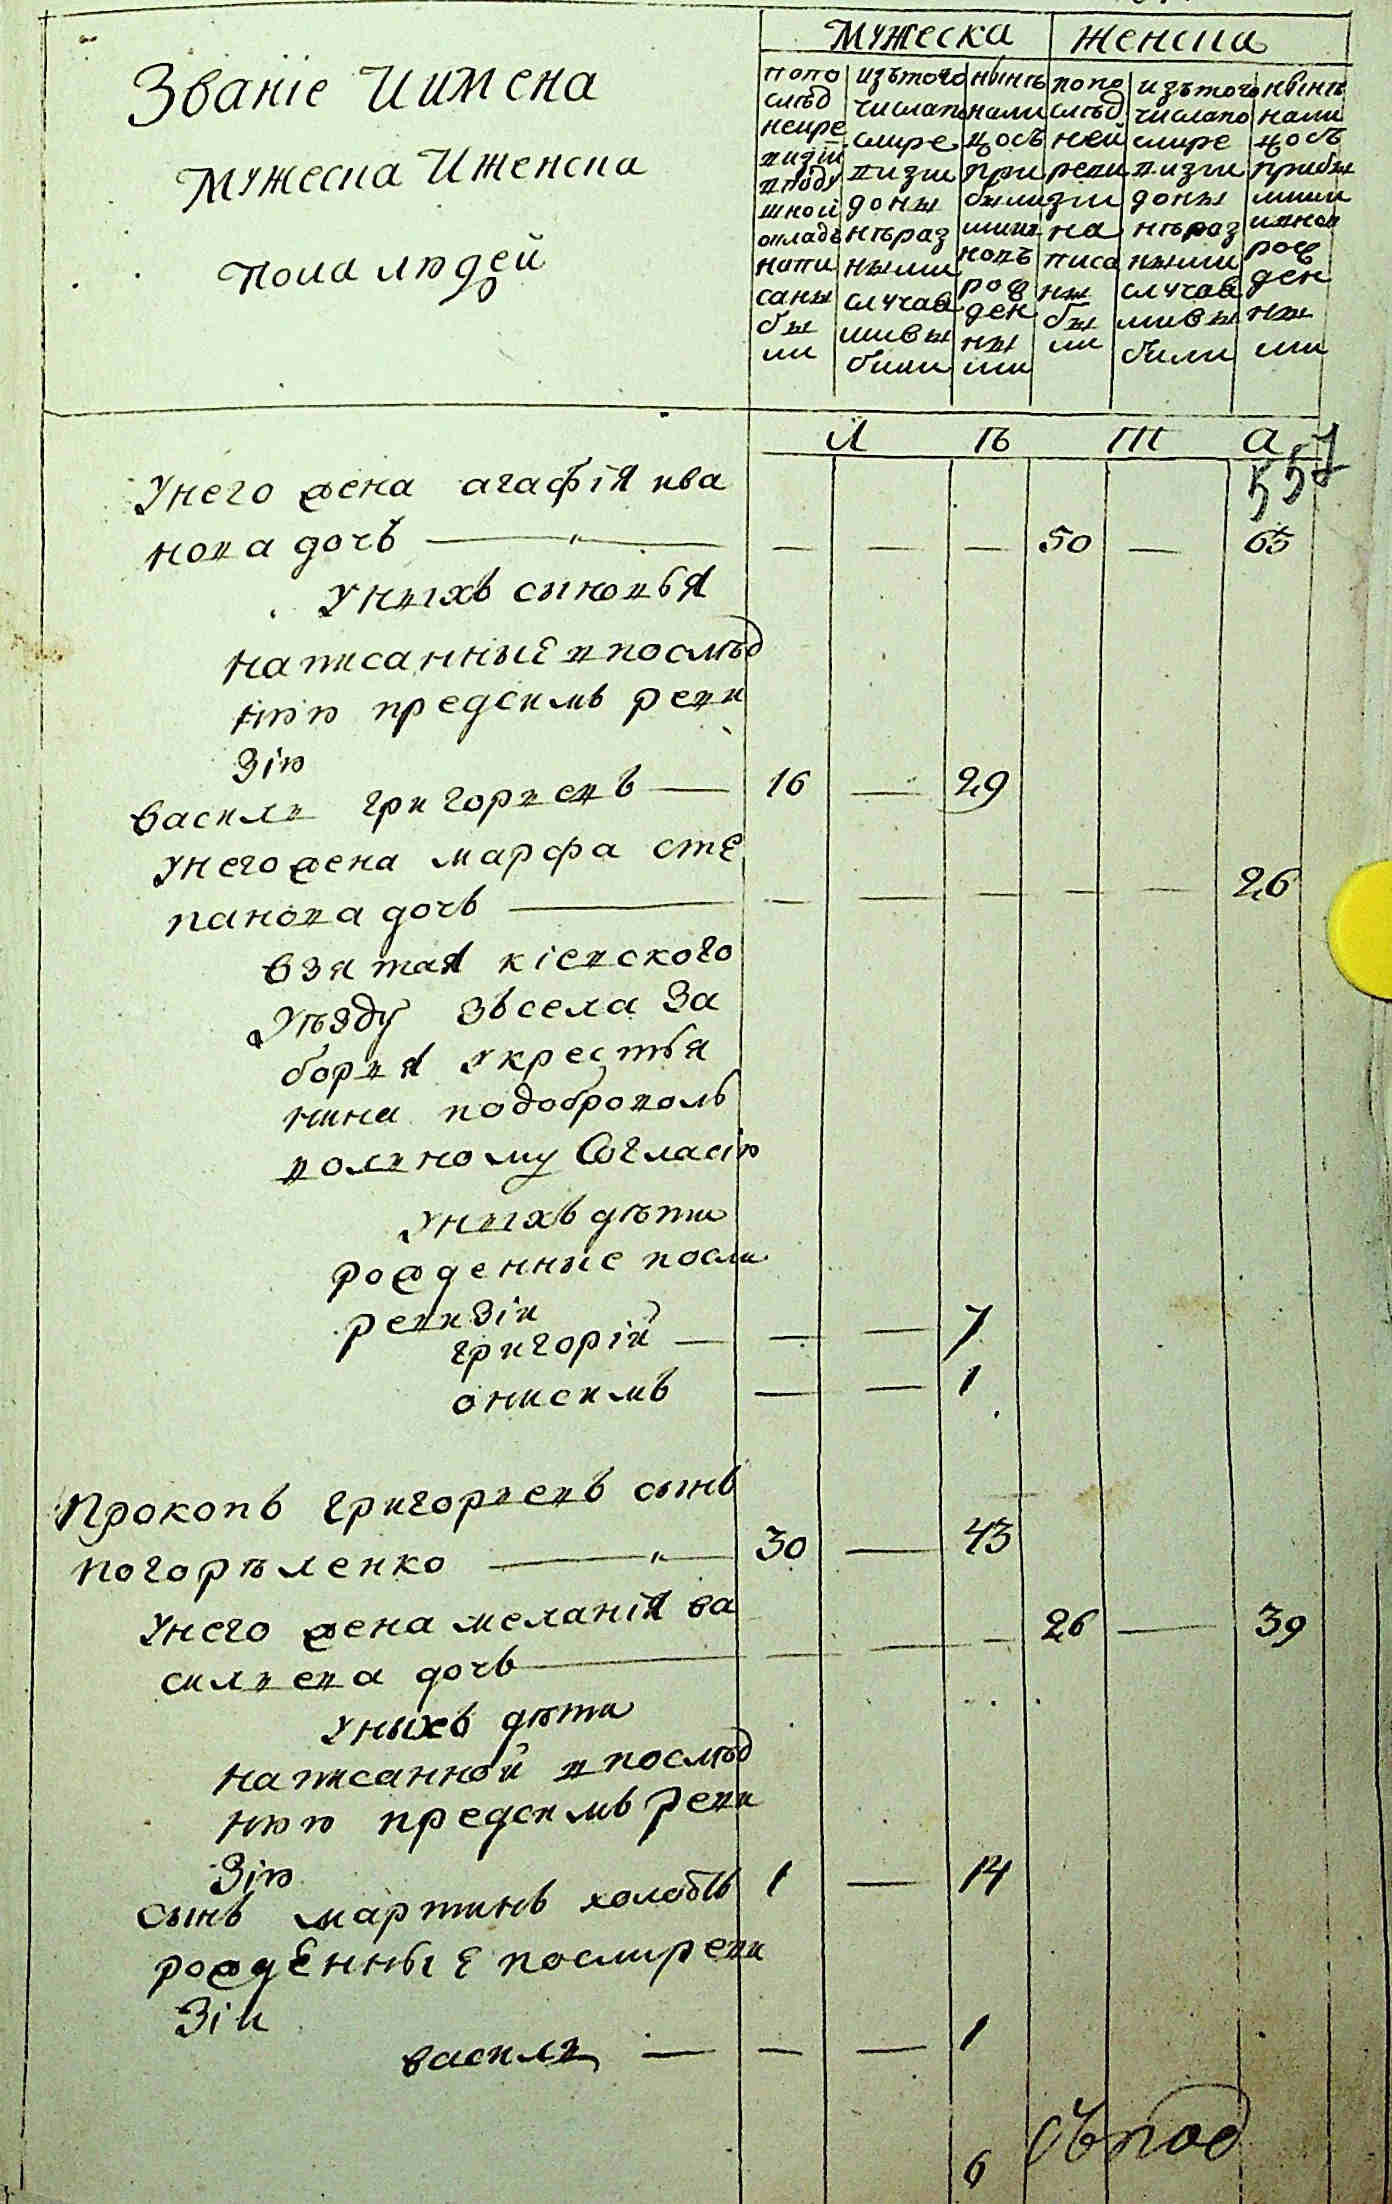 Званіе Иимена
мужеска Иженска
пола людей
мужеска
женска
попо
слѣд
неире
визіи
вподу
шной
окладъ
напи
саны
бы
ли
изътого
числапо
слире
визіи
доны
нѣраз
ными
случаѧ
мивы
были
нынѣ
нали
цосъ
при
были
ми
новъ
рож
ден
ны
ми
попо
слѣд
ней
реви
зіи
на
писа
ны
бы
ли
изътого
числапо
слире
визіи
доны
нѣраз
ными
случаѧ
мивы
были
нынѣ
нали
цосъ
прибы
лими
ивнов
рож
ден
ны
ми
Л ѣ т а
557
Унего жена агафія ива
нова дочь — — — — 50 — 65
Уныхъ сыновья
написанные впослѣд
нюю предсимъ реви
зію
василь григорьевъ — 16 — 29
Унего жена марфа сте
панова дочь — — — — — — 26
взятая кіевского
Уѣзду зъсела За
борья Укрестья
нина подоброволь
вольному Согласію
Уныхъ дѣти
рожденные посли
ревизіи
григорій — — — 7
онисимъ — — 1
Прокопъ григорьевъ сынъ
погорѣленко — 30 — 43
Унего жена меланія ва
сильева дочь — — — — 26 — 39
Уныхъ дѣти
написанной впослѣд
нюю предсимъ реви
зію
сынъ мартинъ холостъ 1 — 14
рожденные послиреви
зіи
василь — — — 1
6